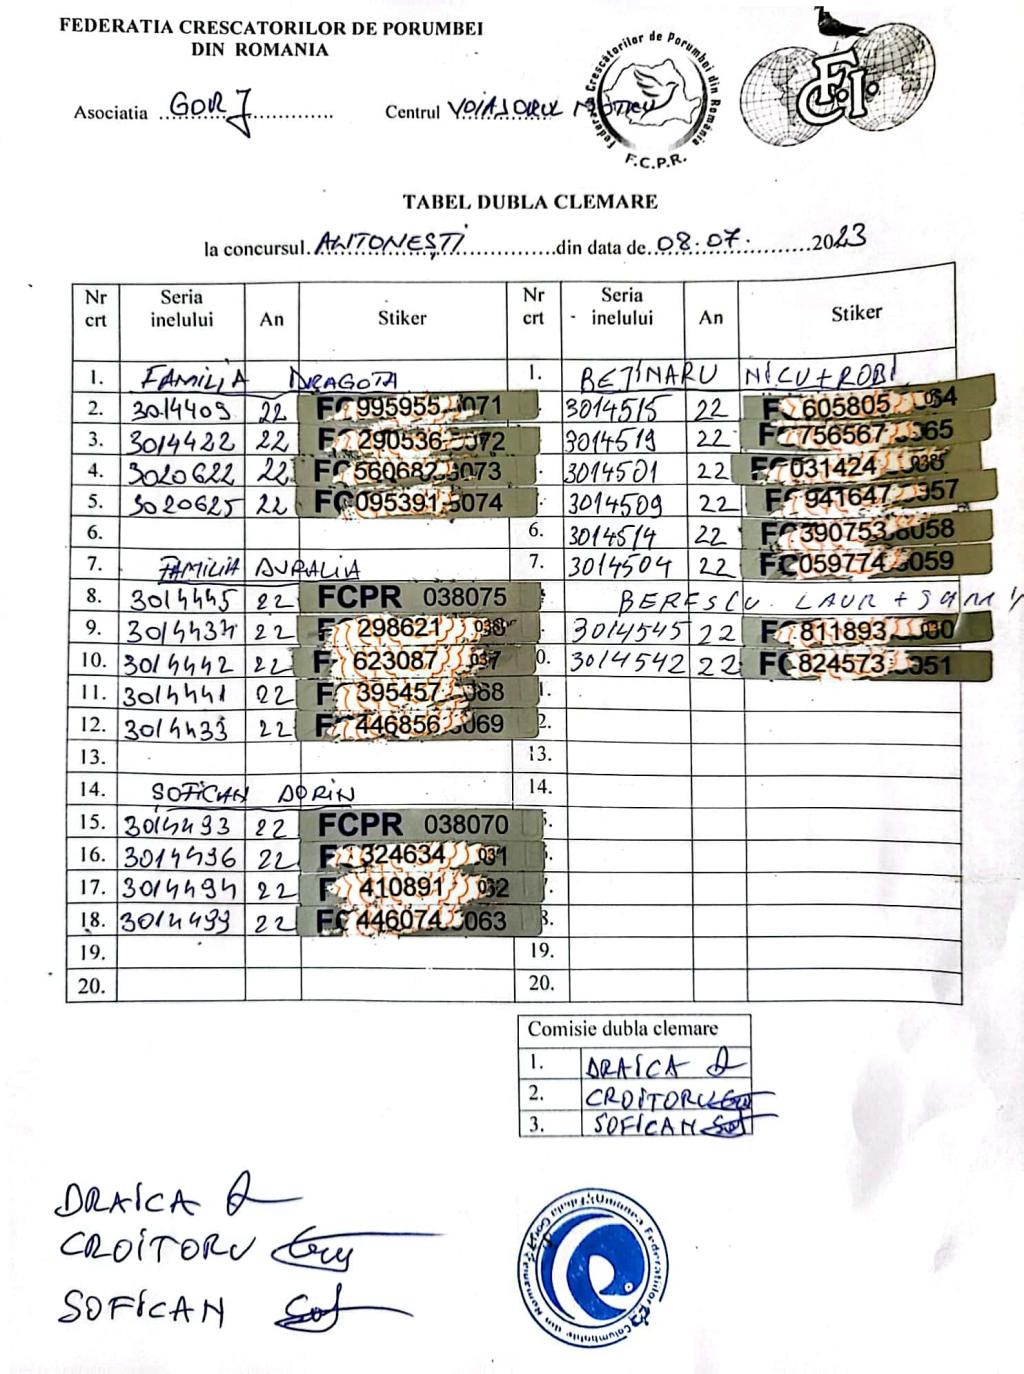 FEDERATIA CRESCATORILOR DE PORUMBEI
DIN ROMANIA
Asociatia GORJ Centrul VOIAJORUL
Federația Crescătorilor de Porumbei din România
F.C.P.R.
F.C.I.
TABEL DUBLA CLEMARE
la concursul ANTONEȘTI din data de 08.07. 2023
Nr crt Seria inelului An Stiker Nr crt Seria inelului An Stiker
1. FAMILIA DRAGOTA 1. BEȚINARU NICU+ROBI
2. 3014409 22 FC 995955 071 3014515 22 F 605805 064
3. 3014422 22 FC 290536 072 3014519 22 F 756567 065
4. 3020622 22 FC 560682 073 3014501 22 F 031424
5. 3020625 22 FC 095391 074 3014509 22 F 941647 057
6. 6. 3014514 22 FC 390753 058
7. FAMILIA DURALIA 7. 3014504 22 FC 059774 059
8. 3014445 22 FCPR 038075 BERESCU LAUR +
9. 3014434 22 F 298621 3014545 22 F 811893
10. 3014442 22 F 623087 037 0. 3014542 22 FC 824573 051
11. 3014441 22 F 395457 068
12. 3014433 22 F 446856 069 2.
13. 13.
14. SOFICAN DORIN 14.
15. 3014493 22 FCPR 038070
16. 3014496 22 F 324634 031
17. 3014494 22 F 410891 032
18. 3014499 22 FC 446074 063 8.
19. 19.
20. 20.
Comisie dubla clemare
1. DRAICA
2. CROITORU
3. SOFICAN
DRAICA
CROITORU
SOFICAN